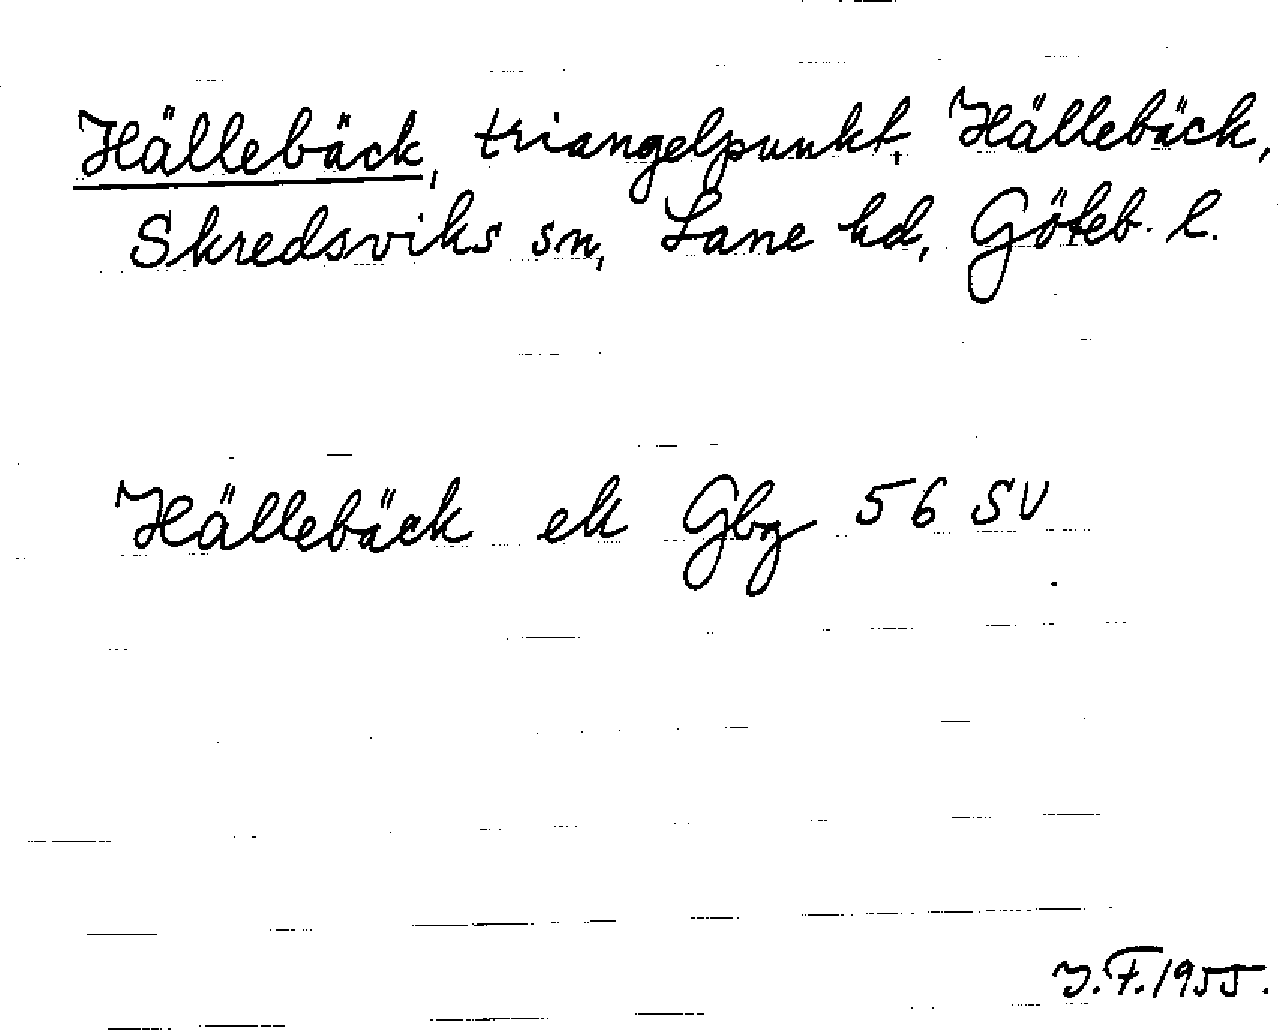 Hällebäck, triangelpunkt, Hällebäck,
Skredsviks sn, Lane hd, Göteb. l.
Hällebäck ek Gbg 56 SV
J.F. 1955.